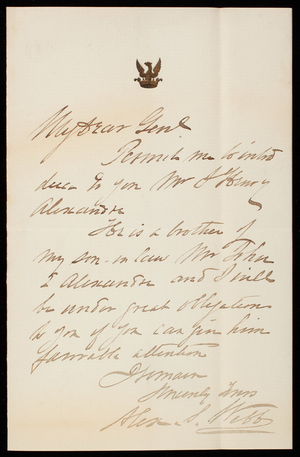 My dear Genl
Permit me to intro
duce to you Mr J Henry
Alexandre
He is a brother of
my son-in law Mr John
E Alexandre and I will
be under great obligation
to you if you can give him
favorable attention
I remain
Sincerely Yours
Alex. S. Webb